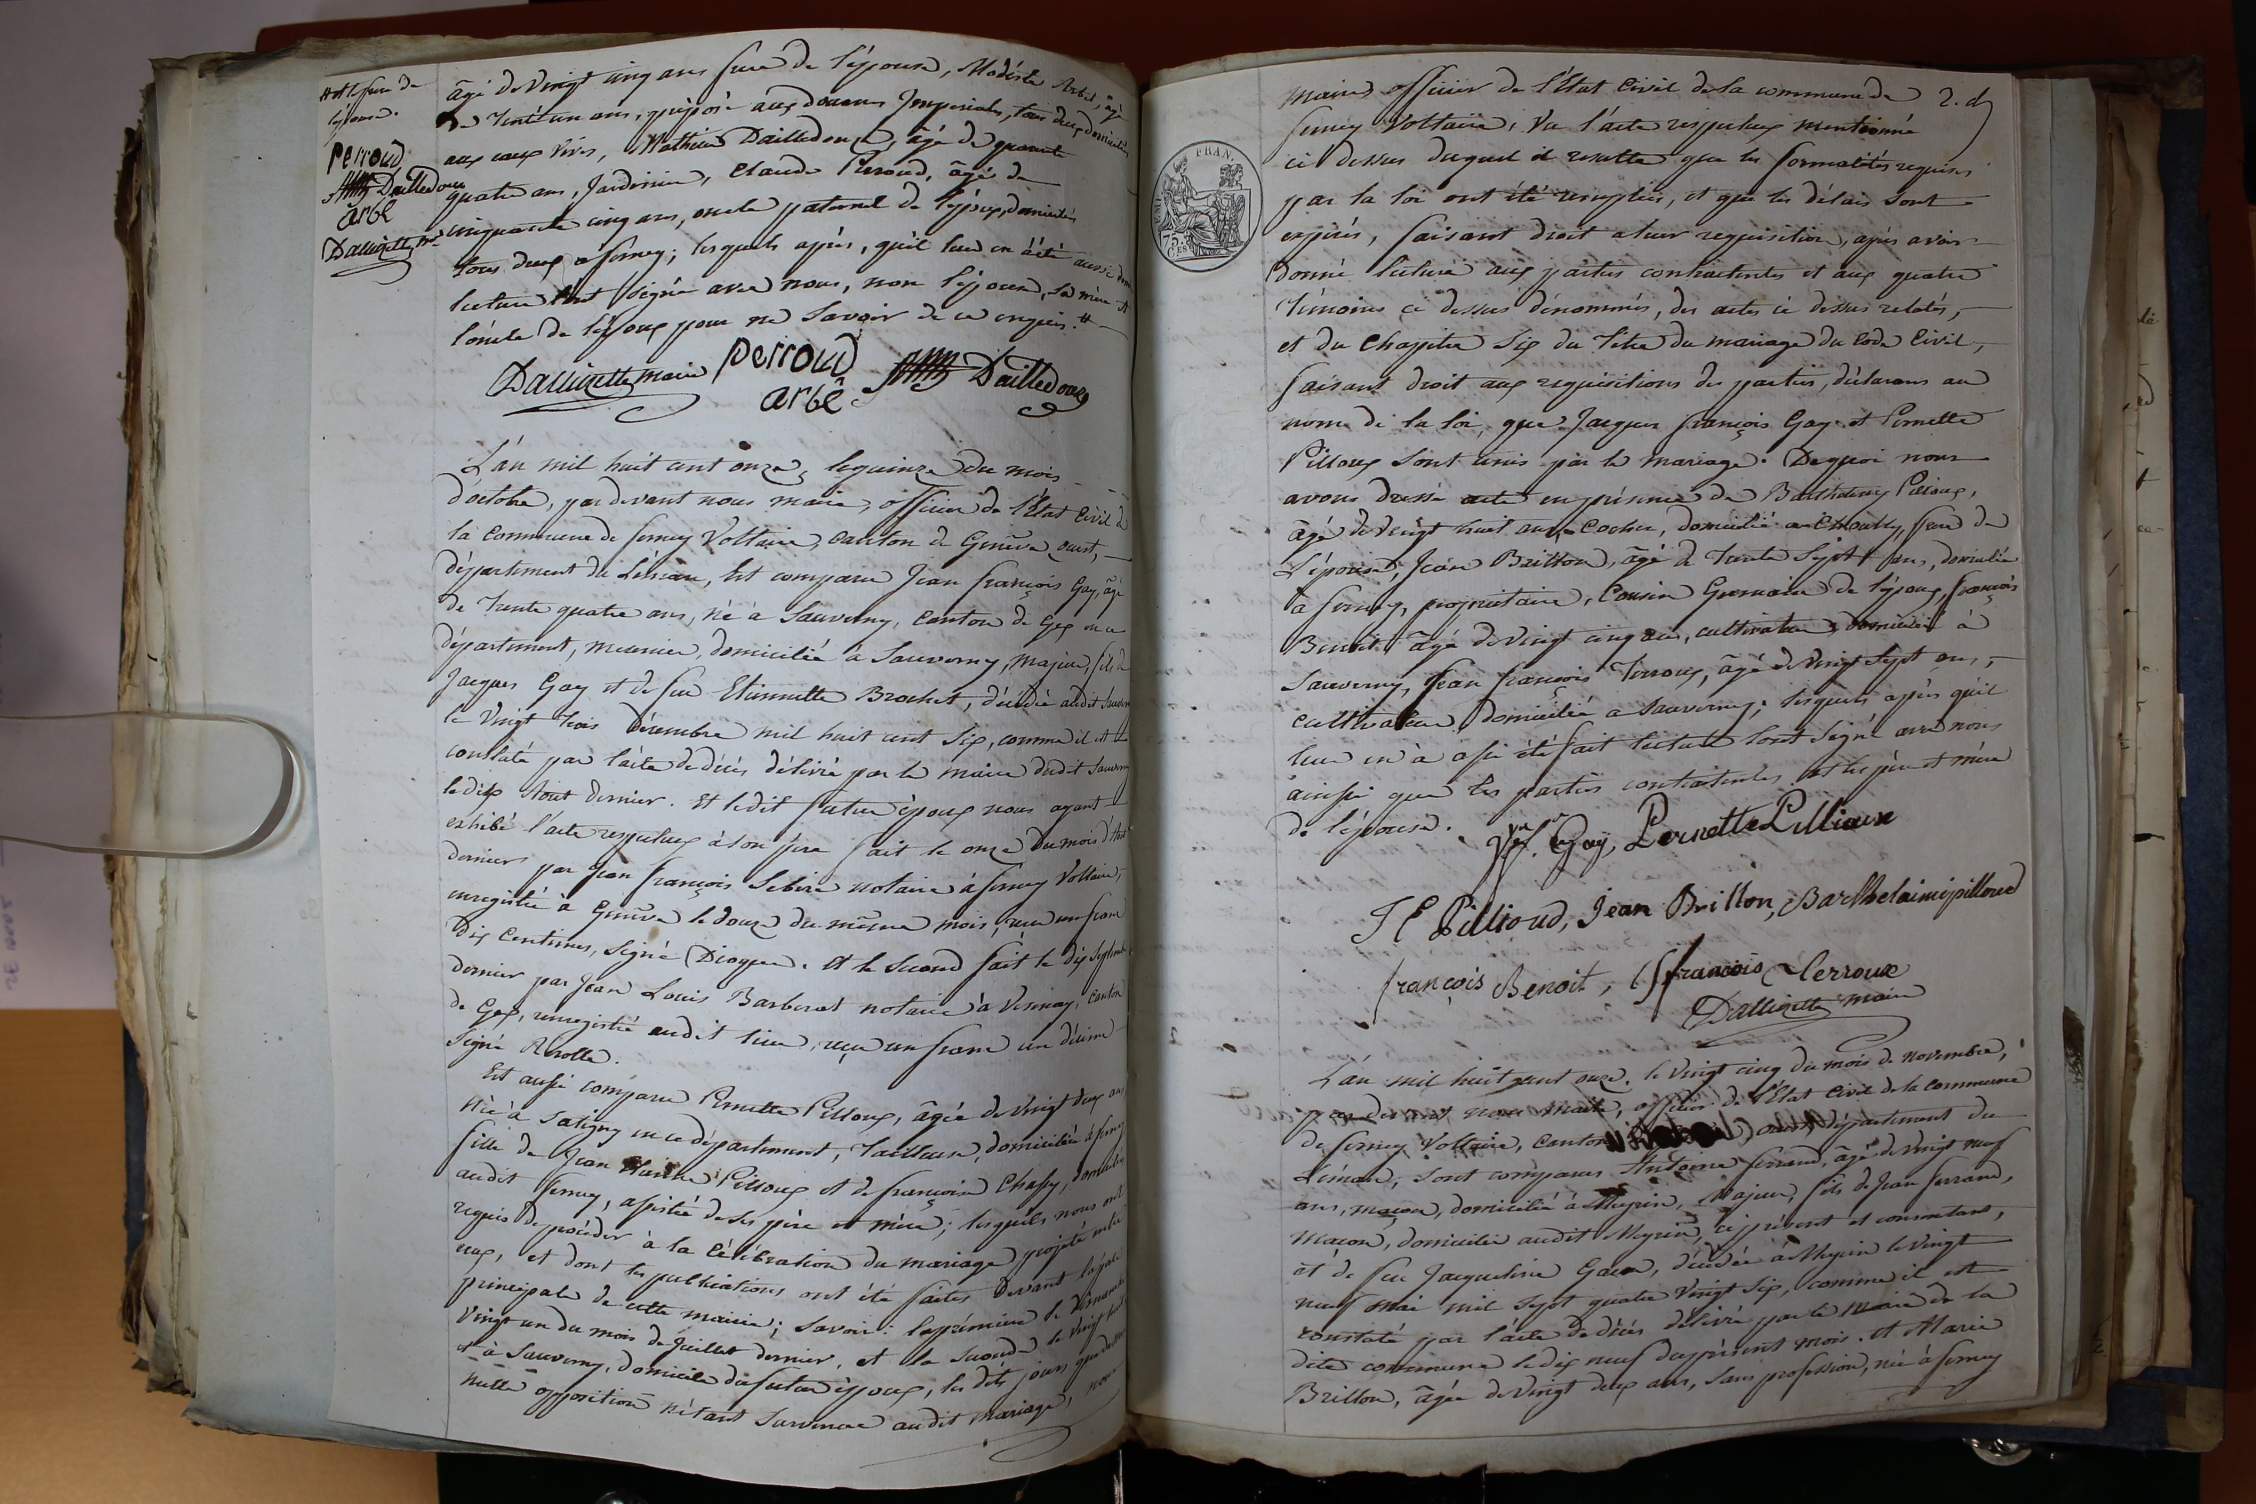 # et le frère de
l'épouse.
Perroud
Dailledouze
arbé
Dallizette m.re
âgé de vingt cinq ans frère de l'épouse, Modéste Arbé, âgé
de Trente un ans, préposé aux douanes Imperiales, tous deux domiciliés
aux eaux vives, Mathieu Dailledouze, âgé de quarante
quatre ans, Jardinier, Claude Perroud, âgé de
cinquante cinq ans, oncle paternel de l'époux, domiciliés
tous deux à ferney; lesquels après, qu'il leur en a été aussi donné
lecture ont signé avec nous, non l'épouse, sa mère et
l'oncle de l'époux pour ne savoir de ce enquis. #
Dallizette maire Perroud
arbé Dailledouze
L'an mil huit cent onze, le quinze du mois
d'octobre, par devant nous maire, officier de l'État Civil de
la Commune de ferney Voltaire, canton de Genève ouest,
département du Léman, Est comparu Jean françois Gay, âgé
de Trente quatre ans, né à Sauverny, Canton de Gex en ce
département, meunier, domicilié à Sauverny, majeur, fils de
Jacques Gay et de feu Etiennette Brochet, décédée audit Sauverny
le vingt trois décembre mil huit cent six, comme il est
constaté par l'acte de décès délivré par le maire dudit Sauverny
le dix Aout dernier. Et ledit futur époux nous ayant
exhibé l'acte respectueux à son père fait le onze du mois d'Aout
dernier par Jean françois notaire à ferney Voltaire,
enregistré à Genève le douze du même mois, reçu un franc
dix Centimes, signé. Et le second fait le dix Septembre
dernier par Jean Louis Barberet notaire à Versonay, Canton
de Gex, enregistré audit lieu, reçu un franc un décime
signé.
Est aussi comparue Pernette Pilloux, âgée de vingt deux ans
née à Satigny en ce département, Tailleuse, domiciliée à ferney
fille de Jean Pilloux et de françoise Chaffy, domiciliés
audit ferney, assistée de ses père et mère; lesquels nous ont
requis de procéder à la Célébration du mariage projeté entre
eux, et dont les publications ont été faites devant la porte
principale de cette mairie; Savoir: la première le dimanche
vingt un du mois de Juillet dernier, et la seconde le vingt huit
et à Sauverny, domicile du futur époux, les dits jours que dessus
nulle opposition n'étant survenue audit mariage, nous
FRAN.
75
CES
2. d
Maire officier de l'État Civil de la commune de
ferney Voltaire, Vu l'acte respectueux mentionné
ci dessus duquel il resulte que les formalités requises
par la loi ont été remplies, et que les délais sont
expirés, faisant droit a leur requisition, après avoir
donné lecture aux parties contractantes et aux quatre
Témoins ci dessus dénommés, des actes ci dessus relatés,
et du Chapitre Six du Titre du mariage du Code Civil,
faisant droit aux requisitions des parties, déclarons au
nom de la loi, que Jacques françois Gay et Pernette
Pilloux sont unis par le mariage. De quoi nous
avons dressé acte en présence de Barthelemy Pilloux,
âgé de vingt huit ans, Cocher, domicilié a Choully, frère de
L'épouse, Jean Brillon, âgé de Trente Sept ans, domicilié
à ferney, propriétaire, Cousin Germain de l'époux, françois
Benoit âgé de vingt cinq ans, cultivateur, domicilié à
Sauverny, Jean françois Terroux, âgé de vingt Sept ans,
cultivateur domicilié a Sauverny; lesquels après qu'il
leur en à assi été fait lecture sont signé avec nous
ainssi que les parties contractantes et les père et mère
de l'épouse.
Gay, Pernette Pillioux
Pillioud, Jean Brillon, Barthelaimi pilloud
françois Benoit, françois Terroux
Dallizette maire
L'an mil huit cent onze, le vingt cinq du mois de novembre,
par devant nous maire, officier de l'État Civil de la Commune
de ferney Voltaire, Canton ouest, département du
Léman, sont comparus Antoine ferrand, âgé de vingt neuf
ans, maçon, domicilié à Meyrin, Majeur, fils de Jean ferrand,
Maçon, domicilié audit Meyrin, ci présent et consentant,
et de feu Jacqueline, décédée à Meyrin le vingt
neuf mai mil sept quatre vingt six, comme il est
constaté par l'acte de décès délivré par le maire de la
dite commune le dix neuf du présent mois. Et Marie
Brillon, âgée de vingt deux ans, sans profession, née à ferney